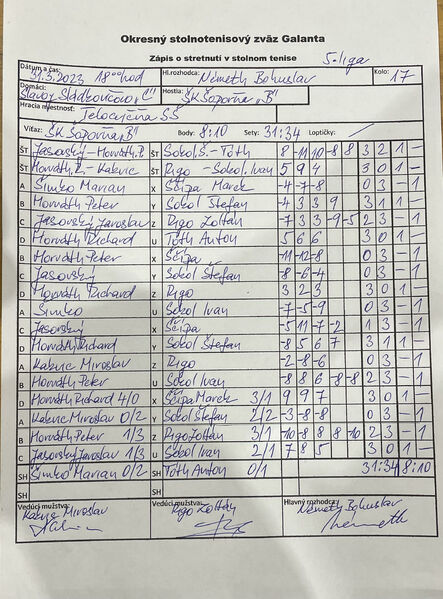 Okresný stolnotenisový zväz Galanta
Zápis o stretnutí v stolnom tenise 5. liga
Dátum a čas: 31.3.2023 18 00 hod Hl.rozhodca: Németh Bohuslav Kolo: 17
Domáci: Slavoj Sládkovičovo „C" Hostia: ŠK Šoporňa „B"
Hracia miestnosť: Telocvičňa SŠ
Víťaz: ŠK Šoporňa „B" Body: 8:10 Sety: 31:34 Loptičky: /
ŠT Jasovský - Horváth P. ŠT Sokol Š. - Tóth 8 -11 10 -8 8 3 2 1 -
ŠT Horváth R. - Kakvic ŠT Rigo - Sokol Ivan 5 9 4 3 0 1 -
A Šimko Marian X Ščipa Marek -4 -7 -8 0 3 - 1
B Horváth Peter Y Sokol Štefan -4 3 3 9 3 1 1 -
C Jasovský Jaroslav Z Rigo Zoltán -7 3 3 -9 -5 2 3 - 1
D Horváth Richard U Tóth Anton 5 6 6 3 0 1 -
B Horváth Peter X Ščipa -11 -12 -8 0 3 - 1
C Jasovský Y Sokol Štefan -8 -6 -4 0 3 - 1
D Horváth Richard Z Rigo 3 2 3 3 0 1 -
A Šimko U Sokol Ivan -7 -5 -9 0 3 - 1
C Jasovský X Ščipa -5 11 -7 -2 1 3 - 1
D Horváth Richard Y Sokol Štefan -8 5 6 7 3 1 1 -
A Kakvic Miroslav Z Rigo -2 -8 -6 0 3 - 1
B Horváth Peter U Sokol Ivan -8 8 6 -8 -8 2 3 - 1
D Horváth Richard 4/0 X Ščipa Marek 3/1 9 9 7 3 0 1 -
A Kakvic Miroslav 0/2 Y Sokol Štefan 2/2 -3 -8 -8 0 3 - 1
B Horváth Peter 1/3 Z Rigo Zoltán 3/1 -10 -8 8 8 -10 2 3 - 1
C Jasovský Jaroslav 1/3 U Sokol Ivan 2/1 7 8 5 3 0 1 -
SH Šimko Marian 0/2 SH Tóth Anton 0/1 31:34 8:10
SH SH
Vedúci mužstva: Vedúci mužstva: Hlavný rozhodca:
Kakvic Miroslav Rigo Zoltán Németh Bohuslav